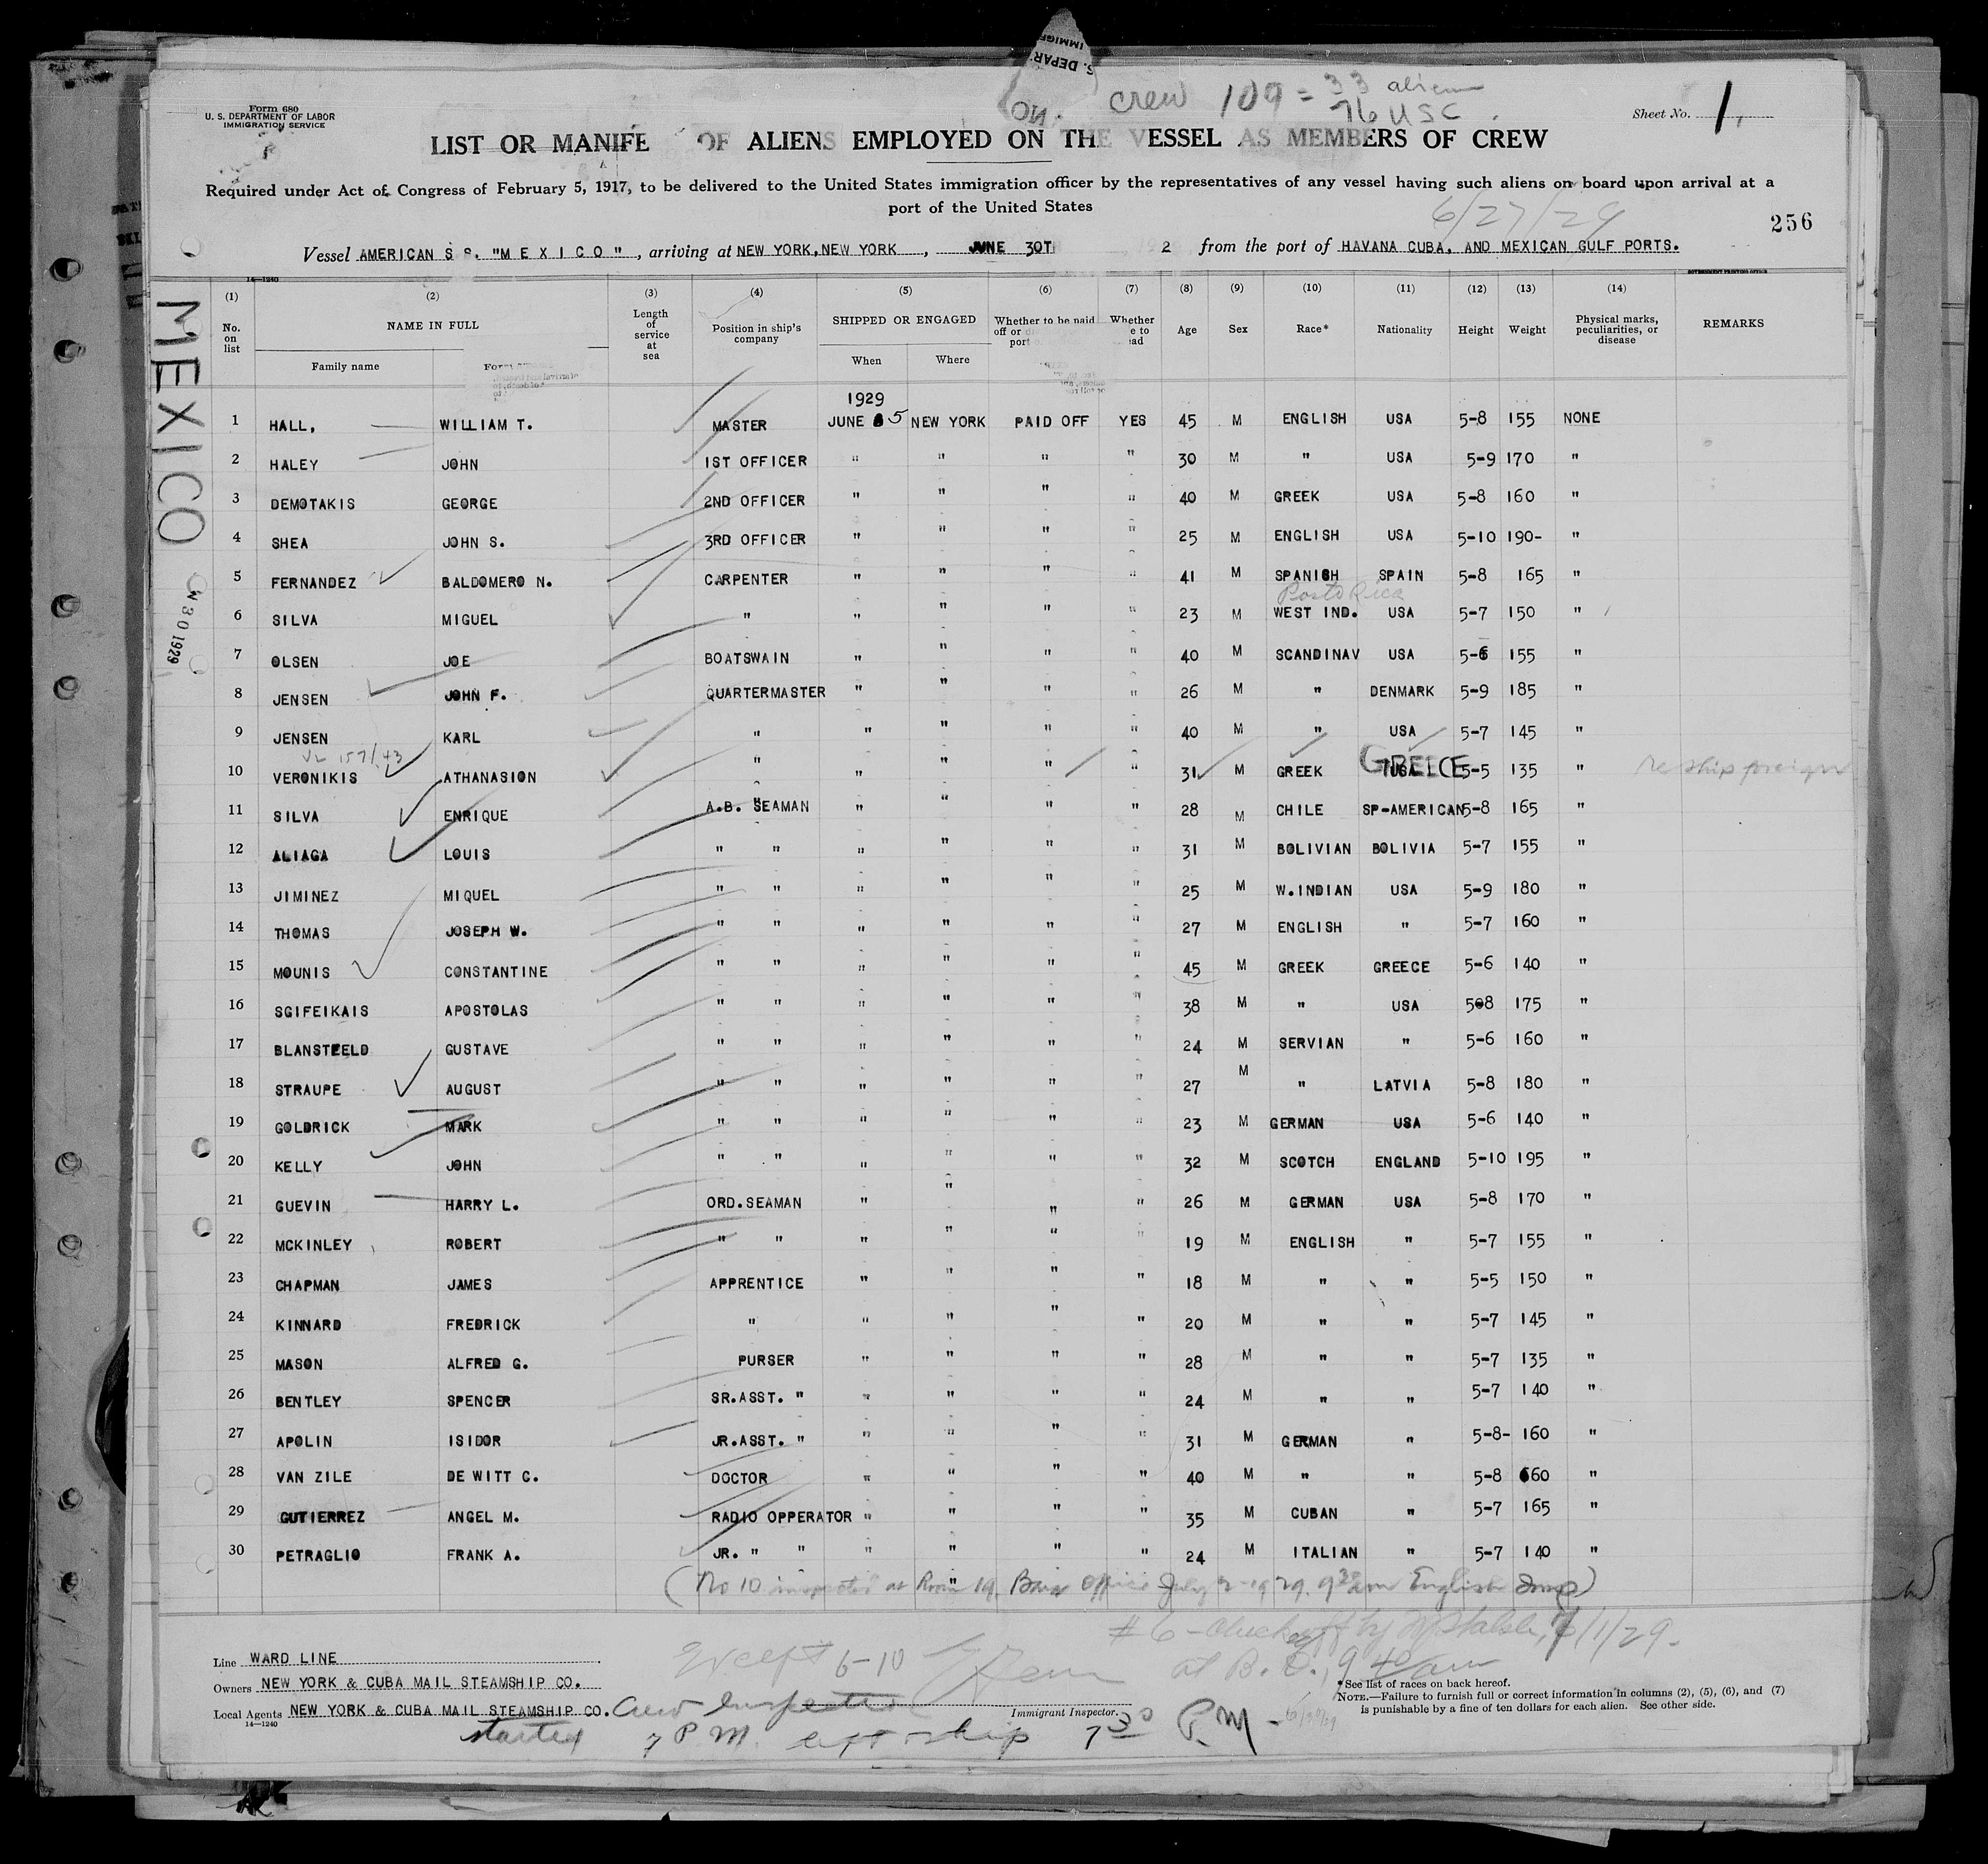 S. DEPAR
IMMIGR
NO.
crew 109 = 33 aliens
76 USC.
Form 680
U. S. DEPARTMENT OF LABOR
IMMIGRATION SERVICE
Sheet No. 1,
LIST OR MANIFE OF ALIENS EMPLOYED ON THE VESSEL AS MEMBERS OF CREW
Required under Act of Congress of February 5, 1917, to be delivered to the United States immigration officer by the representatives of any vessel having such aliens on board upon arrival at a
port of the United States
6/27/29
256
Vessel AMERICAN S S. "M E X I C O", arriving at NEW YORK, NEW YORK, JUNE 30T 2 from the port of HAVANA CUBA, AND MEXICAN GULF PORTS.
14—1240
GOVERNMENT PRINTING OFFICE
MEXICO
30 1929
(1) (2) (3) (4) (5) (6) (7) (8) (9) (10) (11) (12) (13) (14)
No. on list NAME IN FULL Length of service at sea Position in ship's company SHIPPED OR ENGAGED Whether to be paid off or port Whether e to ad Age Sex Race* Nationality Height Weight Physical marks, peculiarities, or disease REMARKS
Family name When Where
1929
1 HALL, WILLIAM T. MASTER JUNE 5 NEW YORK PAID OFF YES 45 M ENGLISH USA 5-8 155 NONE
2 HALEY JOHN 1ST OFFICER " " " " 30 M " USA 5-9 170 "
3 DEMOTAKIS GEORGE 2ND OFFICER " " " " 40 M GREEK USA 5-8 160 "
4 SHEA JOHN S. 3RD OFFICER " " " " 25 M ENGLISH USA 5-10 190- "
5 FERNANDEZ BALDOMERO N. CARPENTER " " " " 41 M SPANISH SPAIN 5-8 165 "
Porto Rica
6 SILVA MIGUEL " " " " " 23 M WEST IND. USA 5-7 150 "
7 OLSEN JOE BOATSWAIN " " " " 40 M SCANDINAV USA 5-6 155 "
8 JENSEN JOHN F. QUARTERMASTER " " " " 26 M " DENMARK 5-9 185 "
9 JENSEN KARL " " " " " 40 M " USA 5-7 145 "
157/43
10 VERONIKIS ATHANASION " " " " " 31 M GREEK USA GREECE 5-5 135 " re ship foreign
11 SILVA ENRIQUE A.B. SEAMAN " " " " 28 M CHILE SP-AMERICAN 5-8 165 "
12 ALIAGA LOUIS " " " " " " 31 M BOLIVIAN BOLIVIA 5-7 155 "
13 JIMINEZ MIQUEL " " " " " " 25 M W.INDIAN USA 5-9 180 "
14 THOMAS JOSEPH W. " " " " " " 27 M ENGLISH " 5-7 160 "
15 MOUNIS CONSTANTINE " " " " " " 45 M GREEK GREECE 5-6 140 "
16 SGIFEIKAIS APOSTOLAS " " " " " " 38 M " USA 5-8 175 "
17 BLANSTEELD GUSTAVE " " " " " " 24 M SERVIAN " 5-6 160 "
18 STRAUPE AUGUST " " " " " " 27 M " LATVIA 5-8 180 "
19 GOLDRICK MARK " " " " " " 23 M GERMAN USA 5-6 140 "
20 KELLY JOHN " " " " " " 32 M SCOTCH ENGLAND 5-10 195 "
21 GUEVIN HARRY L. ORD.SEAMAN " " " " 26 M GERMAN USA 5-8 170 "
22 MCKINLEY ROBERT " " " " " " 19 M ENGLISH " 5-7 155 "
23 CHAPMAN JAMES APPRENTICE " " " " 18 M " " 5-5 150 "
24 KINNARD FREDRICK " " " " " 20 M " " 5-7 145 "
25 MASON ALFRED G. PURSER " " " " 28 M " " 5-7 135 "
26 BENTLEY SPENCER SR.ASST. " " " " " 24 M " " 5-7 140 "
27 APOLIN ISIDOR JR.ASST. " " " " " 31 M GERMAN " 5-8- 160 "
28 VAN ZILE DE WITT C. DOCTOR " " " " 40 M " " 5-8 160 "
29 GUTIERREZ ANGEL M. RADIO OPPERATOR " " " " 35 M CUBAN " 5-7 165 "
30 PETRAGLIO FRANK A. JR. " " " " " " 24 M ITALIAN " 5-7 140 "
(No 10 inspected at Room 19, Barge Office July 2-1929. 9 30 am English Insp)
#6 - Checked off by 7/1/29.
at B. O., 9 40 am
Except 6-10
Line WARD LINE
Owners NEW YORK & CUBA MAIL STEAMSHIP CO.
Local Agents NEW YORK & CUBA MAIL STEAMSHIP CO.
14—1240
Crew Inspected
Immigrant Inspector.
started 7 P M. left ship 7 30 P.M -
*See list of races on back hereof.
NOTE.—Failure to furnish full or correct information in columns (2), (5), (6), and (7)
is punishable by a fine of ten dollars for each alien. See other side.